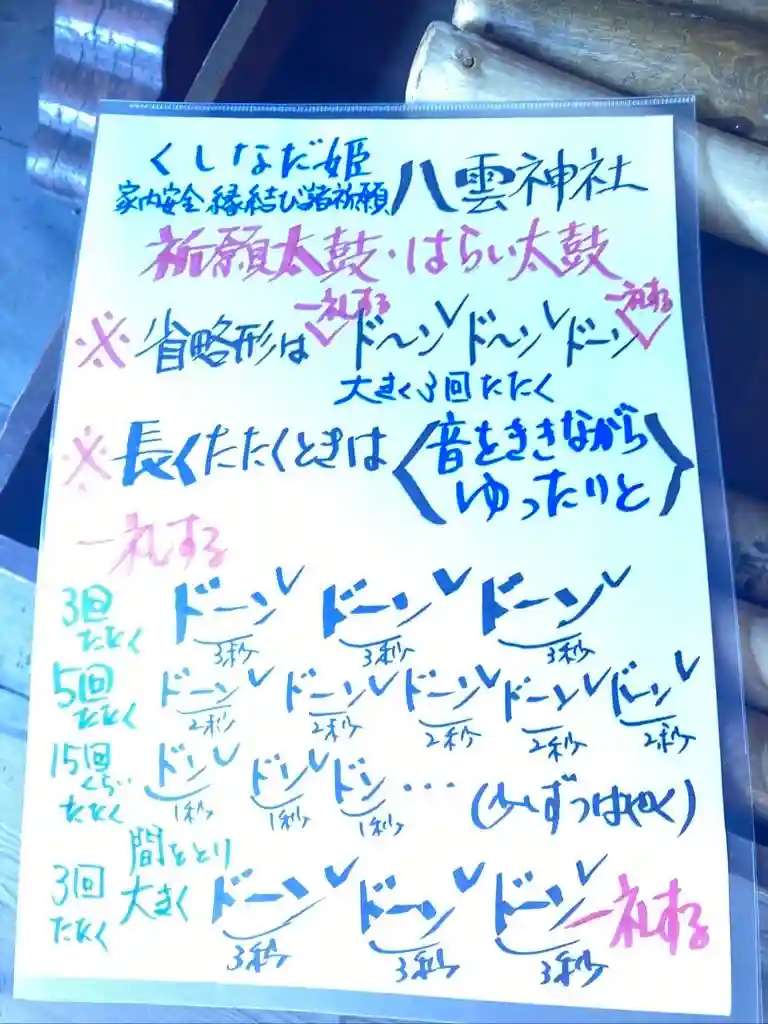 くしなだ姫
家内安全 縁結び 諸祈願
八雲神社
祈願太鼓・はらい太鼓
※省略形は 一礼する ド〜ン ド〜ン ドーン 一礼する
大きく3回たたく
※長くたたくときは〈音をききながら
ゆったりと〉
一礼する
3回たたく ドーン ドーン ドーン
3秒 3秒 3秒
5回たたく ドーン ドーン ドーン ドーン ドーン
2秒 2秒 2秒 2秒 2秒
15回くらいたたく ドン ドン ドン … (少しずつはやく)
1秒 1秒 1秒
間をとり
3回たたく 大きく ドーン ドーン ドーン 一礼する
3秒 3秒 3秒